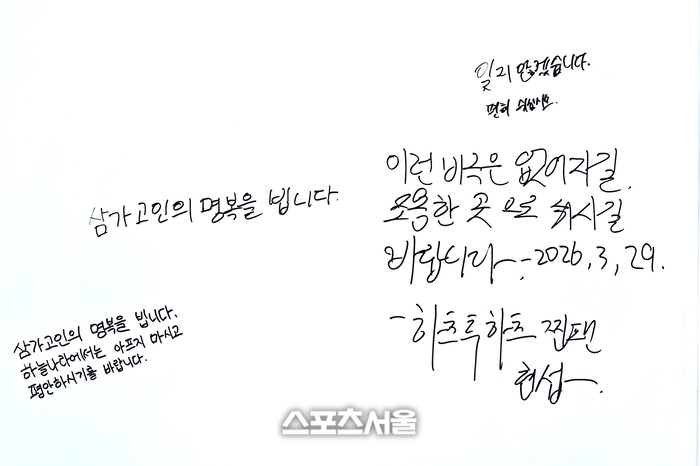 잊지 않겠습니다.
편히 쉬십시오.
이런 비극은 없어지길.
조용한 곳으로 가시길
바랍니다~.-2026.3,29.
- 하츠투하츠 찐팬
현섭-.
삼가고인의 명복을 빕니다.
삼가고인의 명복을 빕니다.
하늘나라에서는 아프지 마시고
평안하시기를 바랍니다.
스포츠서울